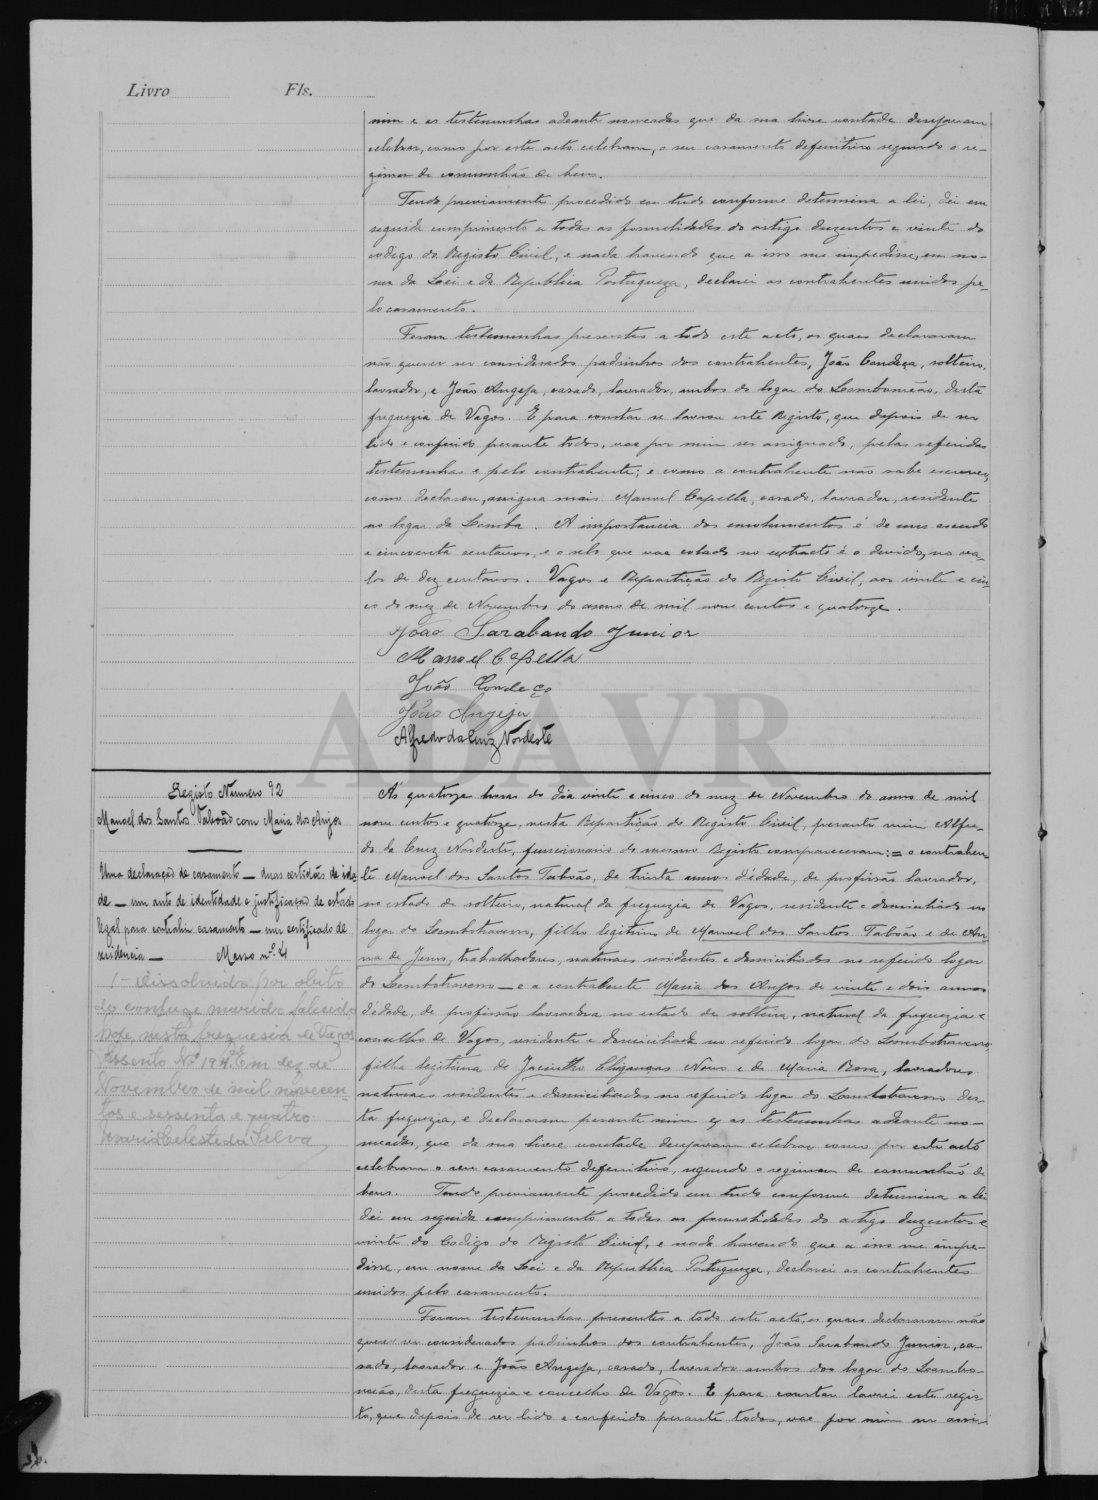 Livro Fls.
mim e as testemunhas adeante nomeadas que da sua livre vontade desejavam
celebrar, como por este acto celebram, o seu casamento definitivo segundo o re-
gimen de comunhão de bens.
Tendo previamente procedido em tudo conforme determina a lei, dei em
seguida cumprimento a todas as formalidades do artigo duzentos e vinte do
codigo do Registo Civil, e nada havendo que a isso me impedisse, em no-
me da Lei e da Republica Portugueza, declarei os contrahentes unidos pe-
lo casamento.
Foram testemunhas presentes a todo este acto, os quaes declararam
não querer ser considerados padrinhos dos contrahentes, João Condeça, solteiro,
lavrador, e João Angeja, casado, lavrador, ambos do logar do Lombomeão, desta
freguezia de Vagos. E para constar se lavrou este Registo, que depois de ser
lido e conferido perante todos, vae por mim ser assignado, pelas referidas
testemunhas e pelo contrahente; e como a contrahente não sabe escrever,
como declarou, assigna mais Manuel Capella, casado, lavrador, residente
no logar da Lomba. A importancia dos emolumentos é de um escudo
e cincoenta centavos, e o selo que vae colado no extracto é o devido, no va-
lor de dez centavos. Vagos e Repartição do Registo Civil, aos vinte e cin-
co do mez de Novembro do anno de mil nove centos e quatorze.
João Sarabando Junior
Manoel Capella
João Condeço
João Angeja
Alfredo da Cruz Nordeste
ADAVR
Registo Numero 92
Manoel dos Santos Taboão com Maria dos Anjos
Uma declaração de casamento — duas certidões de ida-
de — um auto de identidade e justificação de estado
legal para contrahir casamento — um certificado de
residencia — Masso nº 21
1 - Dissolvido por obito
do conjuge marido falecido
hoje nesta freguesia de Vagos
Assento Nº 194. Em dez de
Novembro de mil novecen-
tos e sessenta e quatro.
Maria Celeste da Silva
Ás quatorze horas do dia vinte e cinco do mez de Novembro do anno de mil
nove centos e quatorze, nesta Repartição do Registo Civil, perante mim Alfre-
do da Cruz Nordeste, funcionario do mesmo Registo compareceram: = o contrahen-
te Manoel dos Santos Taboão, de trinta annos d'edade, de profissão lavrador,
no estado de solteiro, natural da freguezia de Vagos, residente e domiciliado no
logar do filho legitimo de Manoel dos Santos Taboão e de An-
na de Jesus, trabalhadores, naturaes residentes e domiciliados no referido logar
do — e a contrahente Maria dos Anjos de vinte e dois annos
d'edade, de profissão lavradora no estado de solteira, natural da freguezia e
concelho de Vagos, residente e domiciliada no referido logar do
filha legitima de Jacintho Novo e de Maria Rosa, lavradores
naturaes residentes e domiciliados no referido logar do des-
ta freguezia, e declararam perante mim e as testemunhas adeante no-
meadas, que da sua livre vontade desejavam celebrar como por este acto
celebram o seu casamento definitivo, segundo o regimen de comunhão de
bens. Tendo previamente procedido em tudo conforme determina a lei
dei em seguida cumprimento a todas as formalidades do artigo duzentos e
vinte do Codigo do Registo Civil, e nada havendo que a isso me impe-
disse, em nome da Lei e da Republica Portugueza, declarei os contrahentes
unidos pelo casamento.
Foram testemunhas presentes a todo este acto, os quaes declararam não
querer ser considerados padrinhos dos contrahentes, João Sarabando Junior, ca-
sado, lavrador e João Angeja, casado, lavrador ambos do logar do Lombo-
meão, desta freguezia e concelho de Vagos. E para constar lavrei este regis-
to, que depois de ser lido e conferido perante todos, vae por mim ser assi-